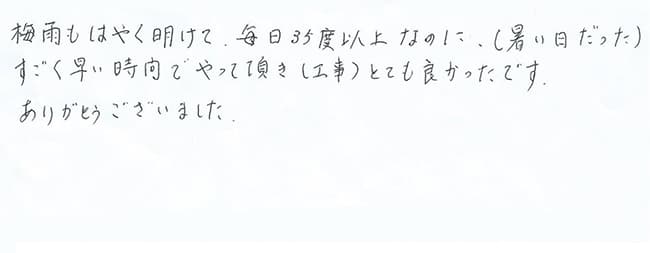 梅雨もはやく明けて、毎日35度以上なのに、(暑い日だった)
すごく早い時間でやって頂き(工事)とても良かったです。
ありがとうございました。